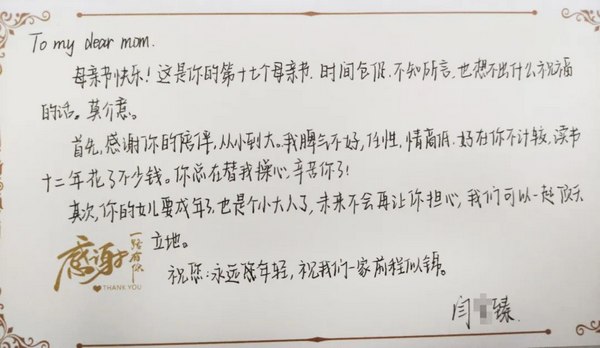 To my dear mom.
母亲节快乐！这是你的第十七个母亲节.时间仓促.不知所言,也想不出什么祝福
的话。莫介意。
首先,感谢你的陪伴,从小到大。我脾气不好,任性,情商低.好在你不计较,读书
十二年花了不少钱。你总在替我操心,辛苦你了!
其次,你的女儿要成年了,也是个小大人了,未来不会再让你担心,我们可以一起顶天
立地。
感谢
一路有你
THANK YOU
祝您:永远年轻,祝我们一家前程似锦。
闫 臻